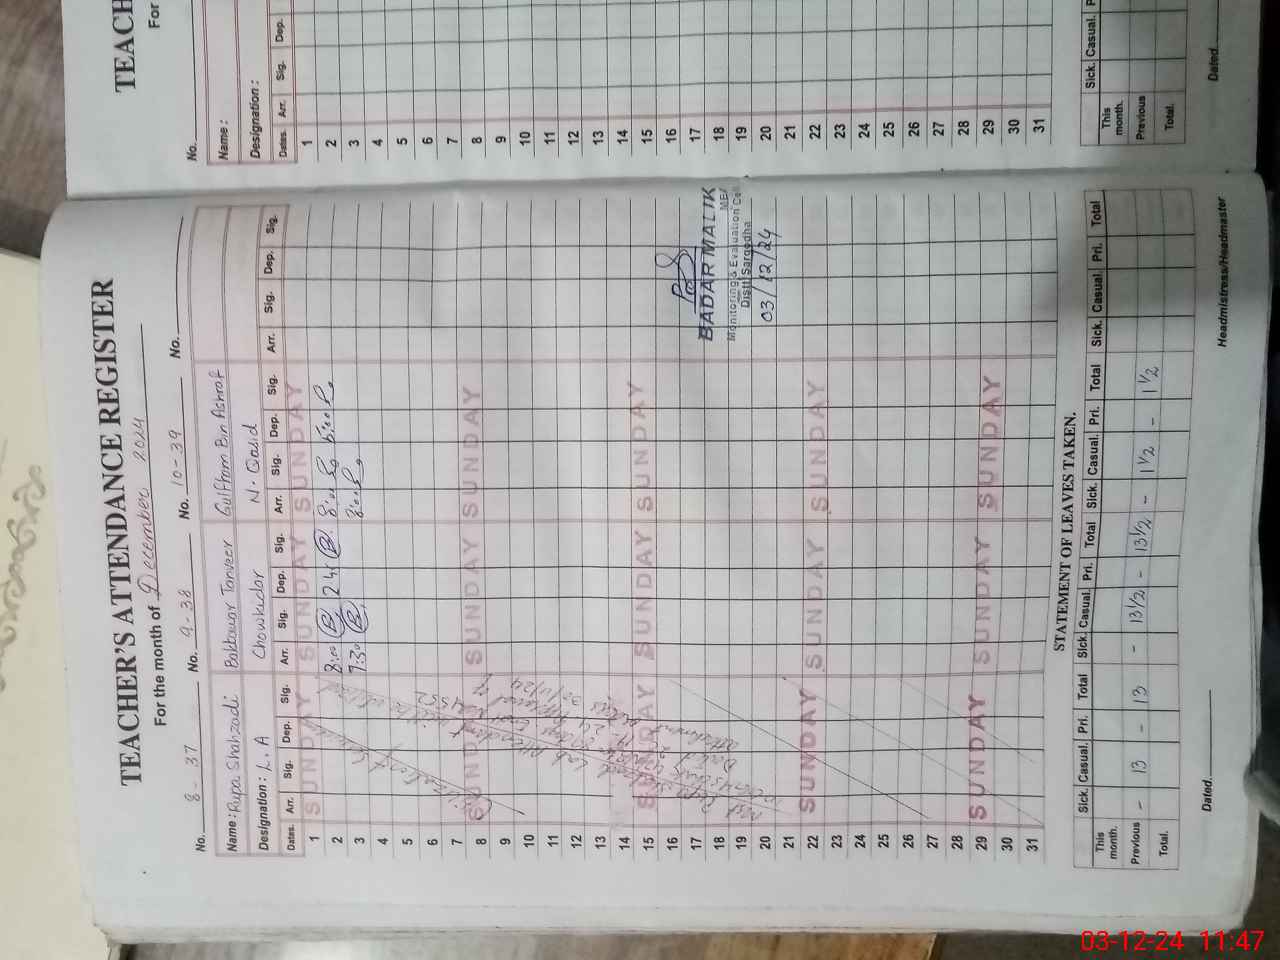 TEACHER'S ATTENDANCE REGISTER
For the month of December 2024
No. 8 - 37 No. 9 - 38 No. 10 - 39 No.
Name: Rupa Shahzadi Bakhtawar Tanveer Gulffam Bin Ashraf
Designation: L.A Chowkidar N. Qasid
Dates. Arr. Sig. Dep. Sig. Arr. Sig. Dep. Sig. Arr. Sig. Dep. Sig. Arr. Sig. Dep. Sig.
1 SUNDAY SUNDAY SUNDAY
2 8:00 8:00 5:00
3 7:30 8:00
4
5
6
7
8 SUNDAY SUNDAY SUNDAY
9
10
11
12
13
14
15 SUNDAY SUNDAY SUNDAY
16
17
18
19
20
21
22 SUNDAY SUNDAY SUNDAY
23
24
25
26
27
28
29 SUNDAY SUNDAY SUNDAY
30
31
BADAR MALIK
MEA
Monitoring & Evaluation Cell
Distt Sargodha
03/12/24
STATEMENT OF LEAVES TAKEN.
Sick. Casual. Pri. Total Sick. Casual. Pri. Total Sick. Casual. Pri. Total Sick. Casual. Pri. Total
This month.
Previous - 13 - 13 - 13 1/2 - 13 1/2 - 1 1/2 - 1 1/2
Total.
Dated
Headmistress/Headmaster
TEACH
For
No.
Name:
Designation:
Dates. Arr. Sig. Dep.
1
2
3
4
5
6
7
8
9
10
11
12
13
14
15
16
17
18
19
20
21
22
23
24
25
26
27
28
29
30
31
Sick. Casual. P
This month.
Previous
Total.
Dated
03-12-24 11:47